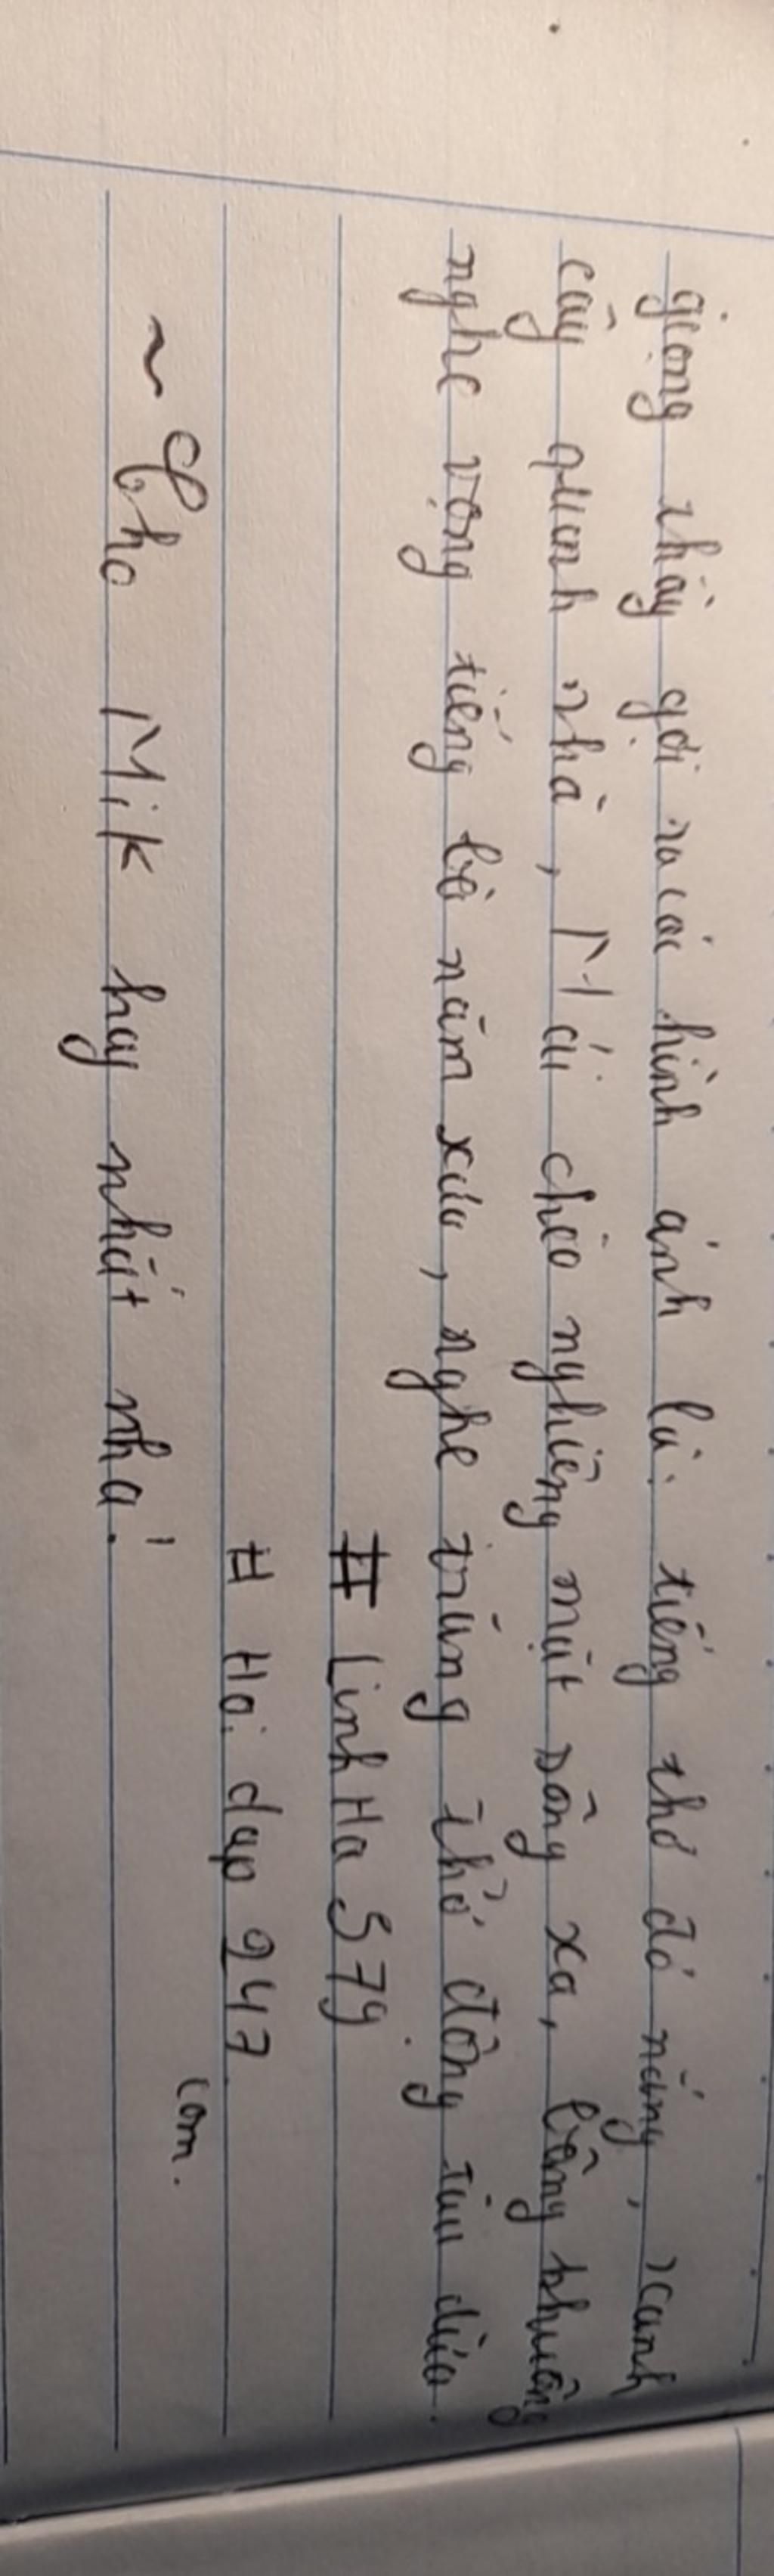 giọng thầy gợi ra các hình ảnh là: tiếng thơ đỏ nắng, xanh
cây quanh nhà, Mái chèo nghiêng mặt sông xa, bâng khuâng
nghe vọng tiếng bà năm xưa, nghe trăng thở động tàu dừa.
# Linh Ha 579
# Hoi dap 247
com.
~ Cho Mik hay nhất nha!